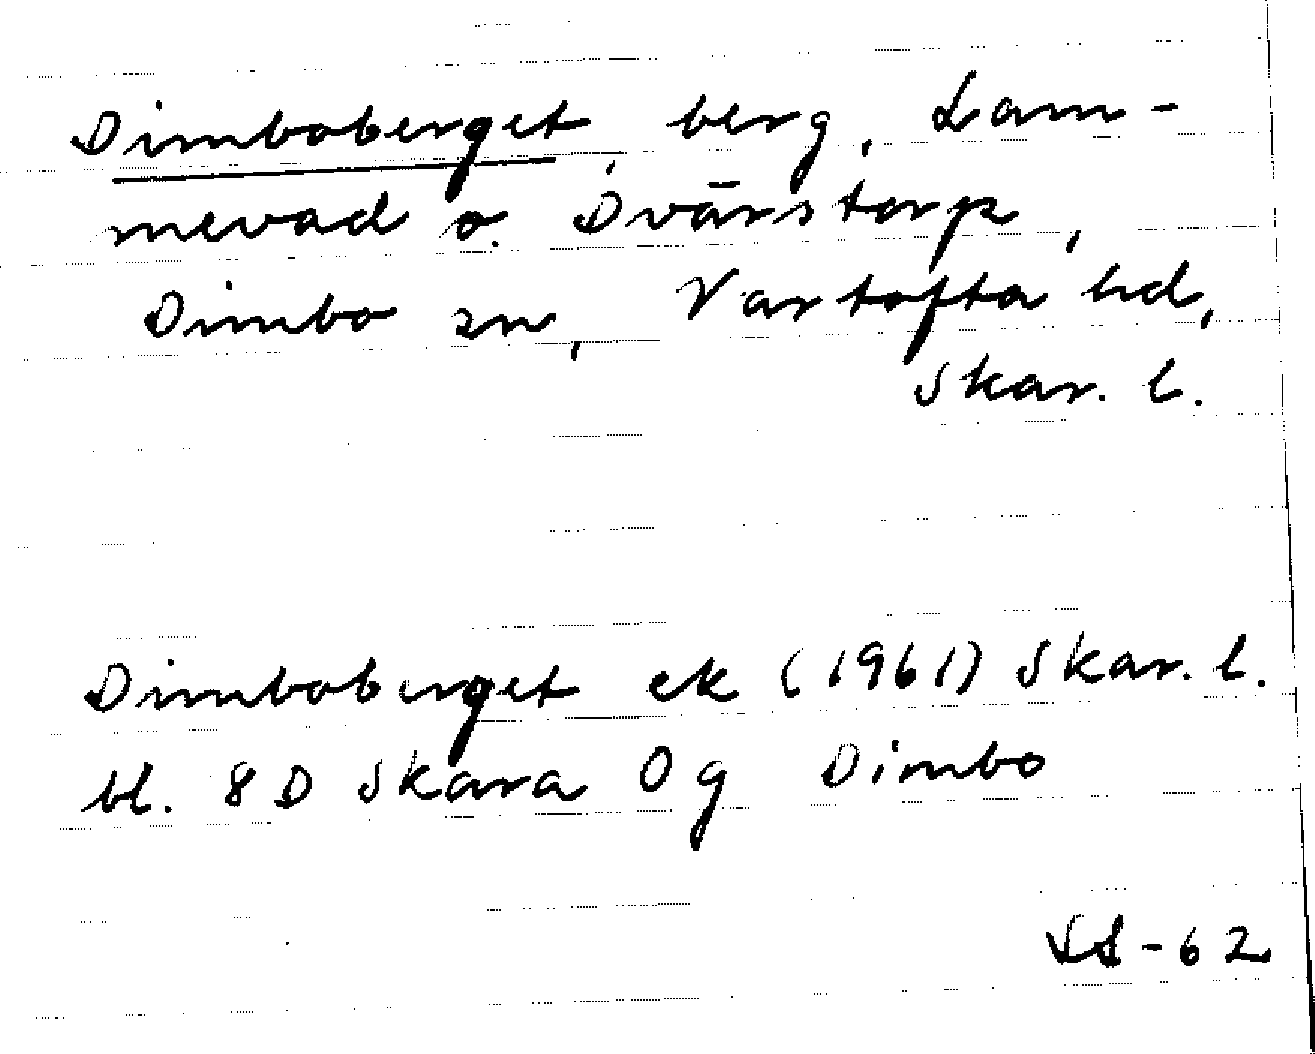 Dimboberget, berg, Lam-
mevad o. Dvärstorp,
Dimbo sn, Vartofta hd,
Skar. l.
Dimboberget ek (1961) Skar. l.
bl. 8D Skara 0g Dimbo
-62